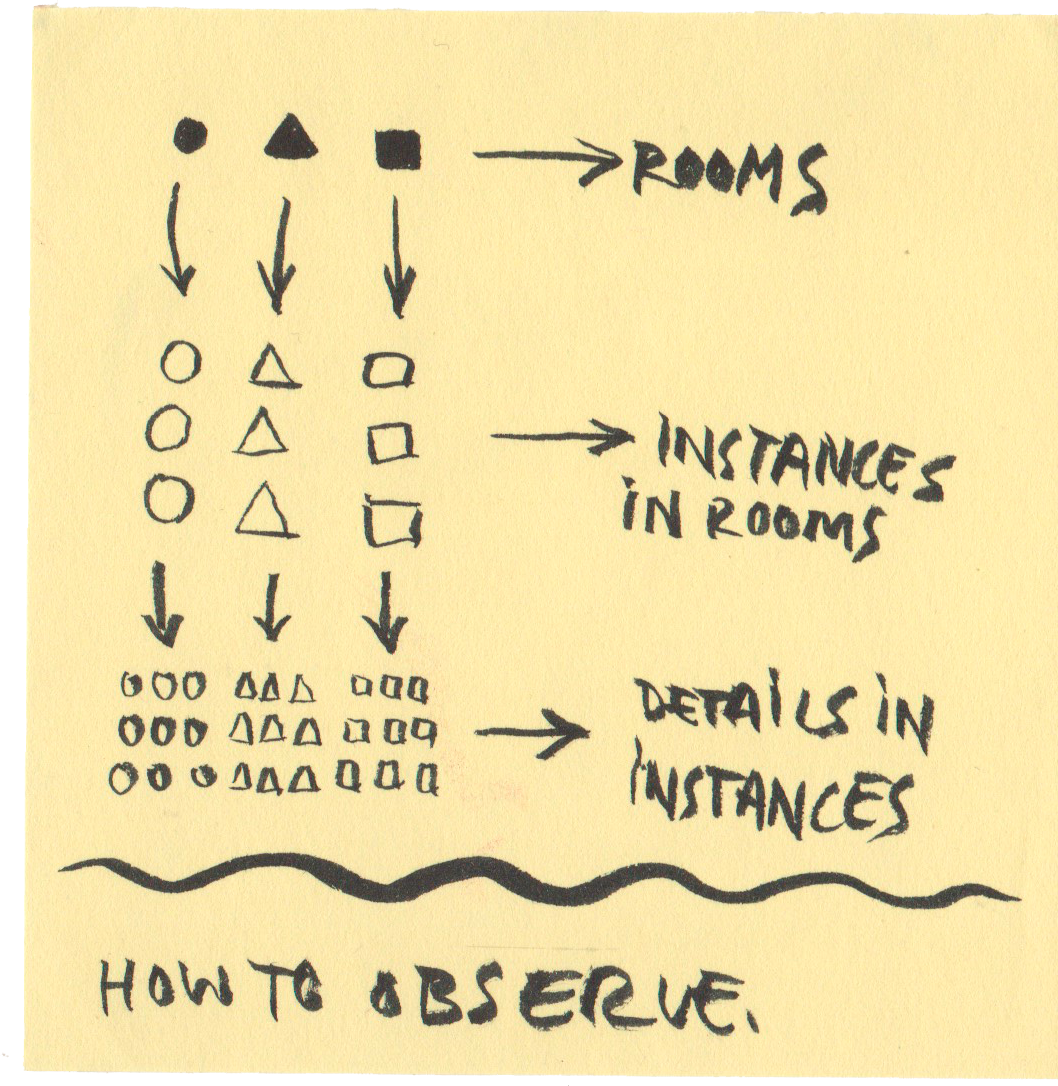 ROOMS
INSTANCES
IN ROOMS
DETAILS IN
INSTANCES
HOW TO OBSERVE.